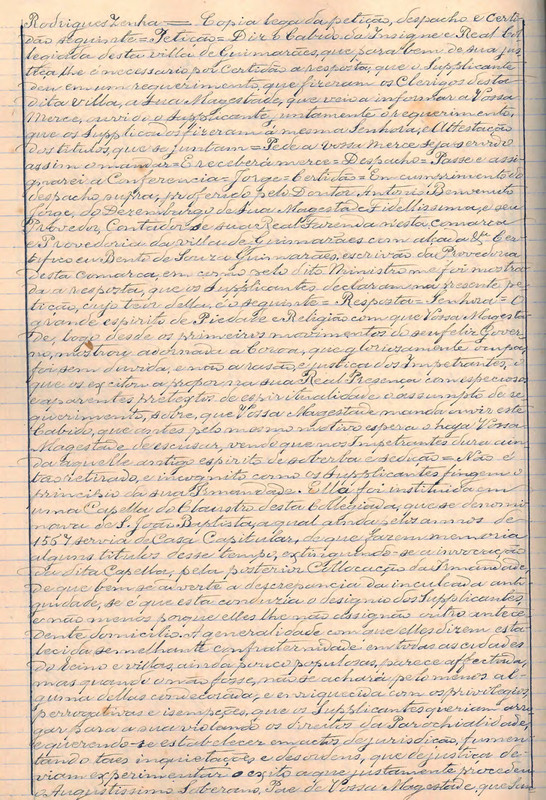 Rodrigues Zenha = Copia lega da petição, despacho e certi-
dão seguinte = Petição = Diz o Cabido da Insigne e Real Col-
legiada desta villa de Guimarães, que para bem de sua jus-
tiça lhe é necessario por Certidão a resposta, que o Supplicante
deu em um requerimento, que fizeram os Clerigos desta
dita villa, a Sua Magestade, que veio a informar a Vossa
Merce, ouvido o Supplicante, juntamente o requerimento,
que os Supplicados fizeram á mesma Senhora, e Attestação
dos titulos, que se juntam = Pede a Vossa Merce seja servido
assim o mandar = E receberá merce = Despacho = Passe e assi-
gnarei a Conferencia = Jorge = Certidão = Em cumprimento do
despacho supra, proferido pelo Doutor Antonio Bemvindo
Jorge, do Dezembargo de Sua Magestade Fidellissima, e seu
Provedor, Contador de sua Real Fazenda nesta comarca
e Provedoria da villa de Guimarães com alçada &ª Cer-
tifico eu Bento de Souza Guimarães, escrivão da Provedoria
desta comarca, em como pelo dito Ministro me foi mostra-
da a resposta, que os Supplicantes declaram na presente pe-
tição, cujo teor della, é o seguinte = Resposta = Senhora = O
grande espirito de Piedade e Religião com que Vossa Magesta-
de, logo desde os primeiros movimentos do seu feliz Gover-
no, mostrou adornada a Coroa, que gloriosamente occupa,
foi sem duvida, e não a rasão, e justiça dos Impetrantes, o
que os excitou a propor na sua Real Presença com especiosos
e apparentes pretextos de espiritualidade o assumpto do re-
querimento, sobre, que Vossa Magestade manda ouvir este
Cabido, que antes pelo mesmo motivo espera o haja Vossa
Magestade de escusar, vendo que nos Impetrantes dura ain-
da aquelle antigo espirito de soberba e sedução = Não é
tão retirado, e incognito como os Supplicantes fingem o
principio da sua Irmandade. Ella foi instituida em
uma Capella do Claustro desta Collegiada, que se denomi-
nava de S. João Baptista, a qual ainda pelos annos de
1557 servia de Casa Capitular, de que fazem memoria
alguns titulos desse tempo, extinguindo-se a invocação
da dita Capella, pela posterior Collocação da Irmandade,
de que bem se adverte a descrepancia da inculcada anti-
guidade, se é que esta conduzia o designio dos Supplicantes,
e não menos porque elles lhe não assignão outro antece-
dente domicilio. A generalidade com que elles dizem esta-
lecida semelhante confraternidade em todas as cidades
do Reino e villas, ainda pouco populosas, parece affectada,
mas quando o não fosse, não se achará pelo menos al-
guma dellas condecorada, e enriquecida com os privilegios,
perrogativas e isempções, que os Supplicantes queriam arro-
gar para a sua violando os direitos da Parochialidade,
e querendo-se estabelecer em actos de jurisdição, fumen-
tando taes inquietações e desordens, que de justiça de-
viam experimentar o exito a que justamente procedeu
o Augustissimo Soberano, Pae de Vossa Magestade, que San